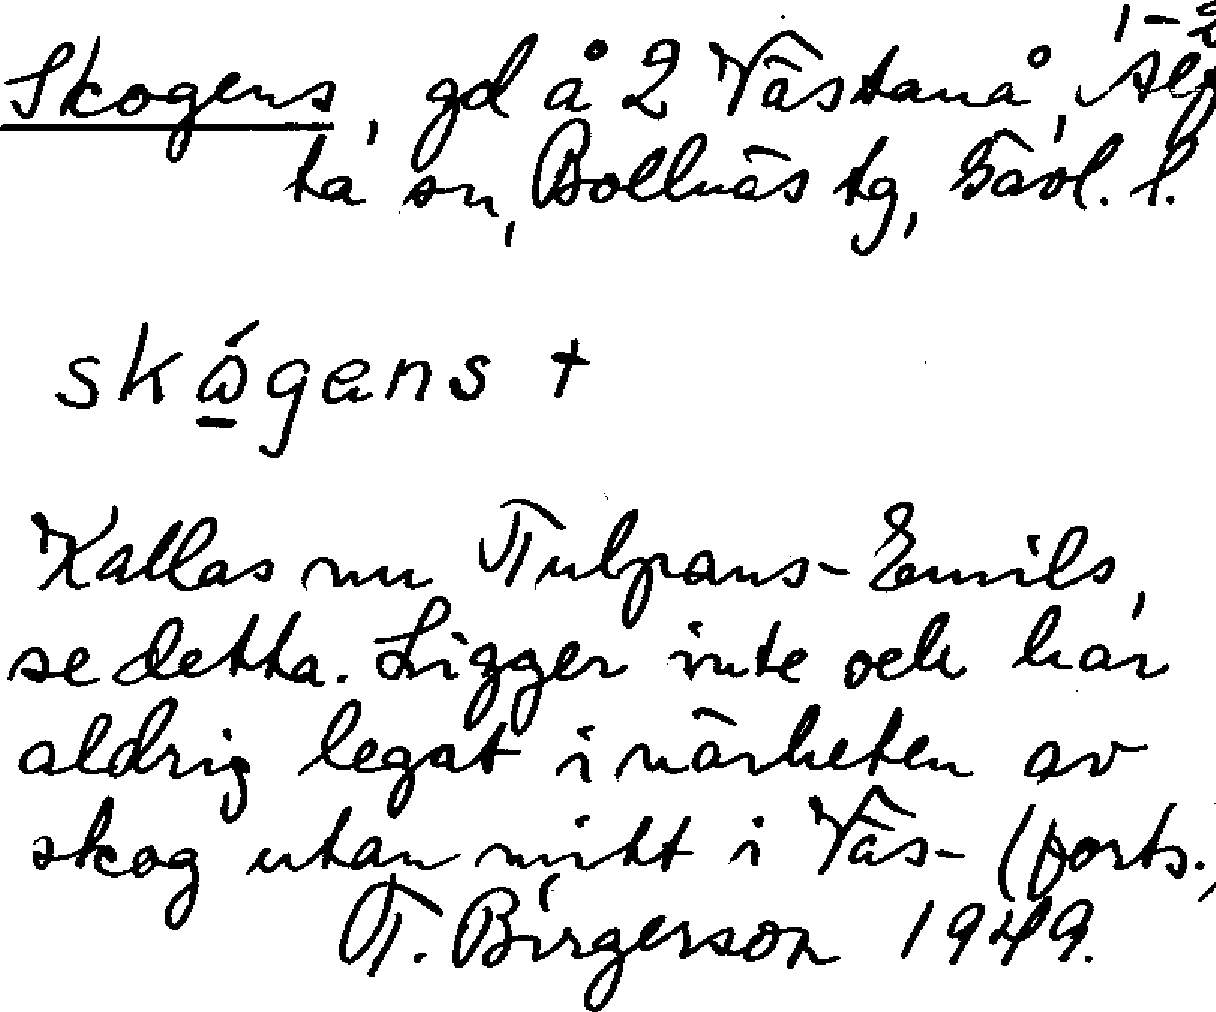 1-2
Skogens, gd å 2 Västanå, Alf
ta sn, Bollnäs tg, Gävl. l.
skógens +
Kallas nu Tulpans-Emils,
se detta. Ligger inte och har
aldrig legat i närheten av
skog utan mitt i Väs- (forts.)
T. Birgerson 1949.